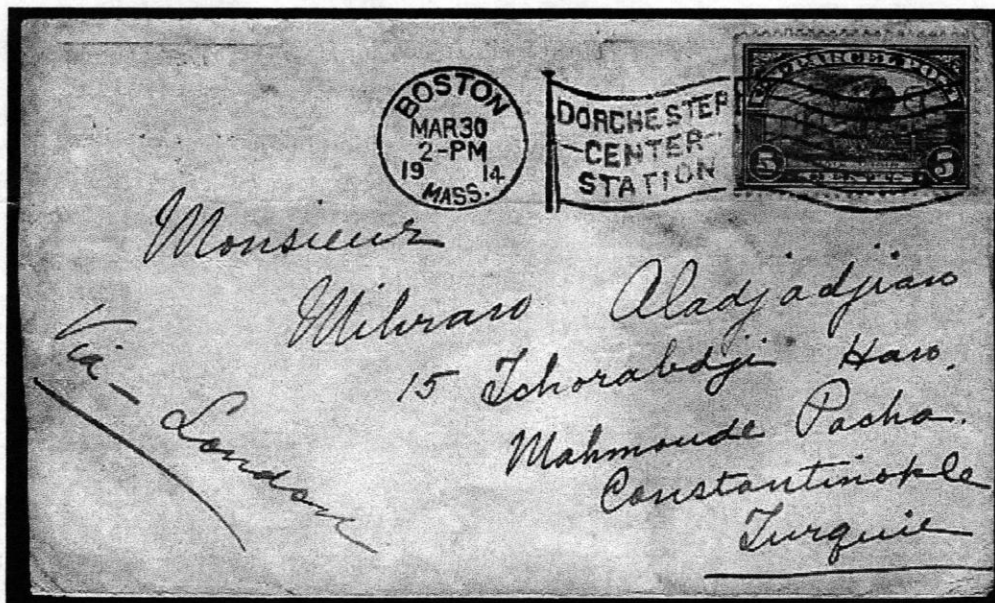 BOSTON
MAR 30
2-PM
19 14
MASS.
DORCHESTER
CENTER
STATION
U.S. PARCEL POST
5 5
Monsieur
Mihran Aladjadjian
15 Tchorabdji Han.
Mahmoude Pacha.
Constantinople
Turquie
Via - London